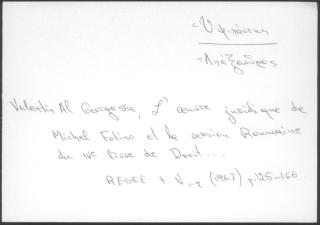 Ὑψηλάντης
Ἀλέξανδρος
Valentin Al Georgescu, L'œuvre juridique de
Michel Fotino et la version Roumaine
du IVe livre de Droit...
RESEE t. V 1-2 (1967) p. 125-166